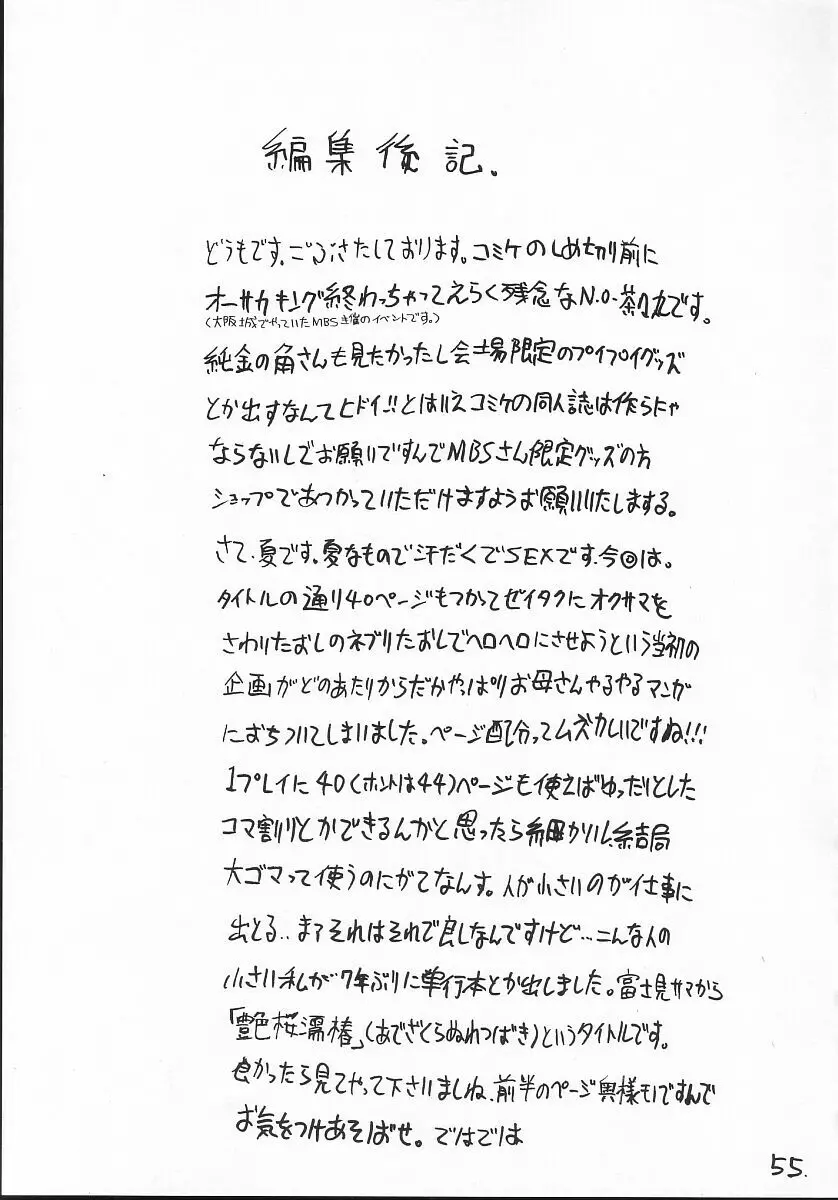 編集後記.
どうもです、ごぶさたしております。コミケのしめ切り前に
オーサカキング終わっちゃってえらく残念なN.O-茶々丸です。
(大阪城でやっていたMBS主催のイベントです。)
純金の角さんも見たかったし会場限定のプイプイグッズ
とか出すなんてヒドイ!!とはいえコミケの同人誌は作らにゃ
ならないしでお願いですんでMBSさん限定グッズの方
ショップであつかっていただけますようお願いいたしまする。
さて、夏です、夏なもので汗だくでSEXです、今回は。
タイトルの通り40ページもつかってゼイタクにオクサマを
さわりたおしのネブりたおしでヘロヘロにさせようという当初の
企画がどのあたりからだかやっぱりお母さんやるやるマンガ
におちついてしまいました。ページ配分ってムズカしいですね!!!
1プレイに40(ホントは44)ページも使えばゆったりとした
コマ割りとかができるんかと思ったら細かりし、結局
大ゴマって使うのにがてなんす。人が小さいのが仕事に
出とる..まァそれはそれで良しなんですけど…こんな人の
小さい私が7年ぶりに単行本とか出しました。富士見サマから
「艶色桜濡椿」(あでざくらぬれつばき)というタイトルです。
良かったら見てやって下さいましね、前半のページ奥様モノですんで
お気をつけあそばせ。ではでは
55.